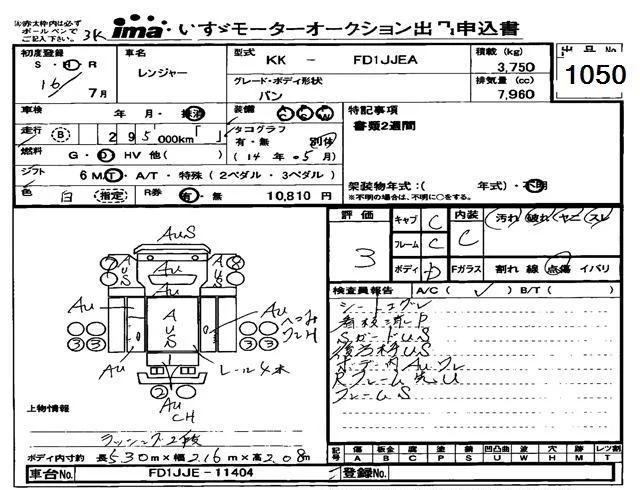 ima いすゞモーターオークション出品申込書
(お)赤太枠内は必ず
ボールペンで
ご記入下さい
3K
初度登録
S・H・R
16 7月
車名
レンジャー
型式
KK - FD1JJEA
グレード・ボディ形状
バン
積載 (kg)
3,750
排気量 (cc)
7,960
出品No.
1050
車検 年 月・抹消
装備 A C P S P W
走行 B 295000km「 」
タコグラフ
有・無 別体
(14年 05月)
燃料 G・D・HV 他( )
シフト 6 MT・A/T・特殊(2ペダル・3ペダル)
色 白 (指定)
R券 有・無 10,810 円
特記事項
書類2週間
架装物年式:( 年式)・不明
※不明の場合は、不明に○をする。
評価 3
キャブ C
フレーム C
ボディ D
内装 C
汚れ・破れ・ヤニ・スレ
Fガラス 割れ 線 点傷 イバリ
検査員報告 A/C( ✓ ) B/T( )
シートコゲ
看板消し P
Sガード US
後方枠 US
ボデー内 AU
Rフレーム先 U
フレーム S
AuS
Au
AUS
Au
Au
AUS
Au
へこみ
Au
レール4本
Au
CH
上物情報
ラッシング2段
ボディ内寸約 長5.30m×幅2.16m×高2.08m
記号 傷 A 板金 B 腐 C 塗 P 錆 S 凹凸曲 U 波 W 穴 H 補 M レツ割 T
車台No. FD1JJE-11404
登録No.